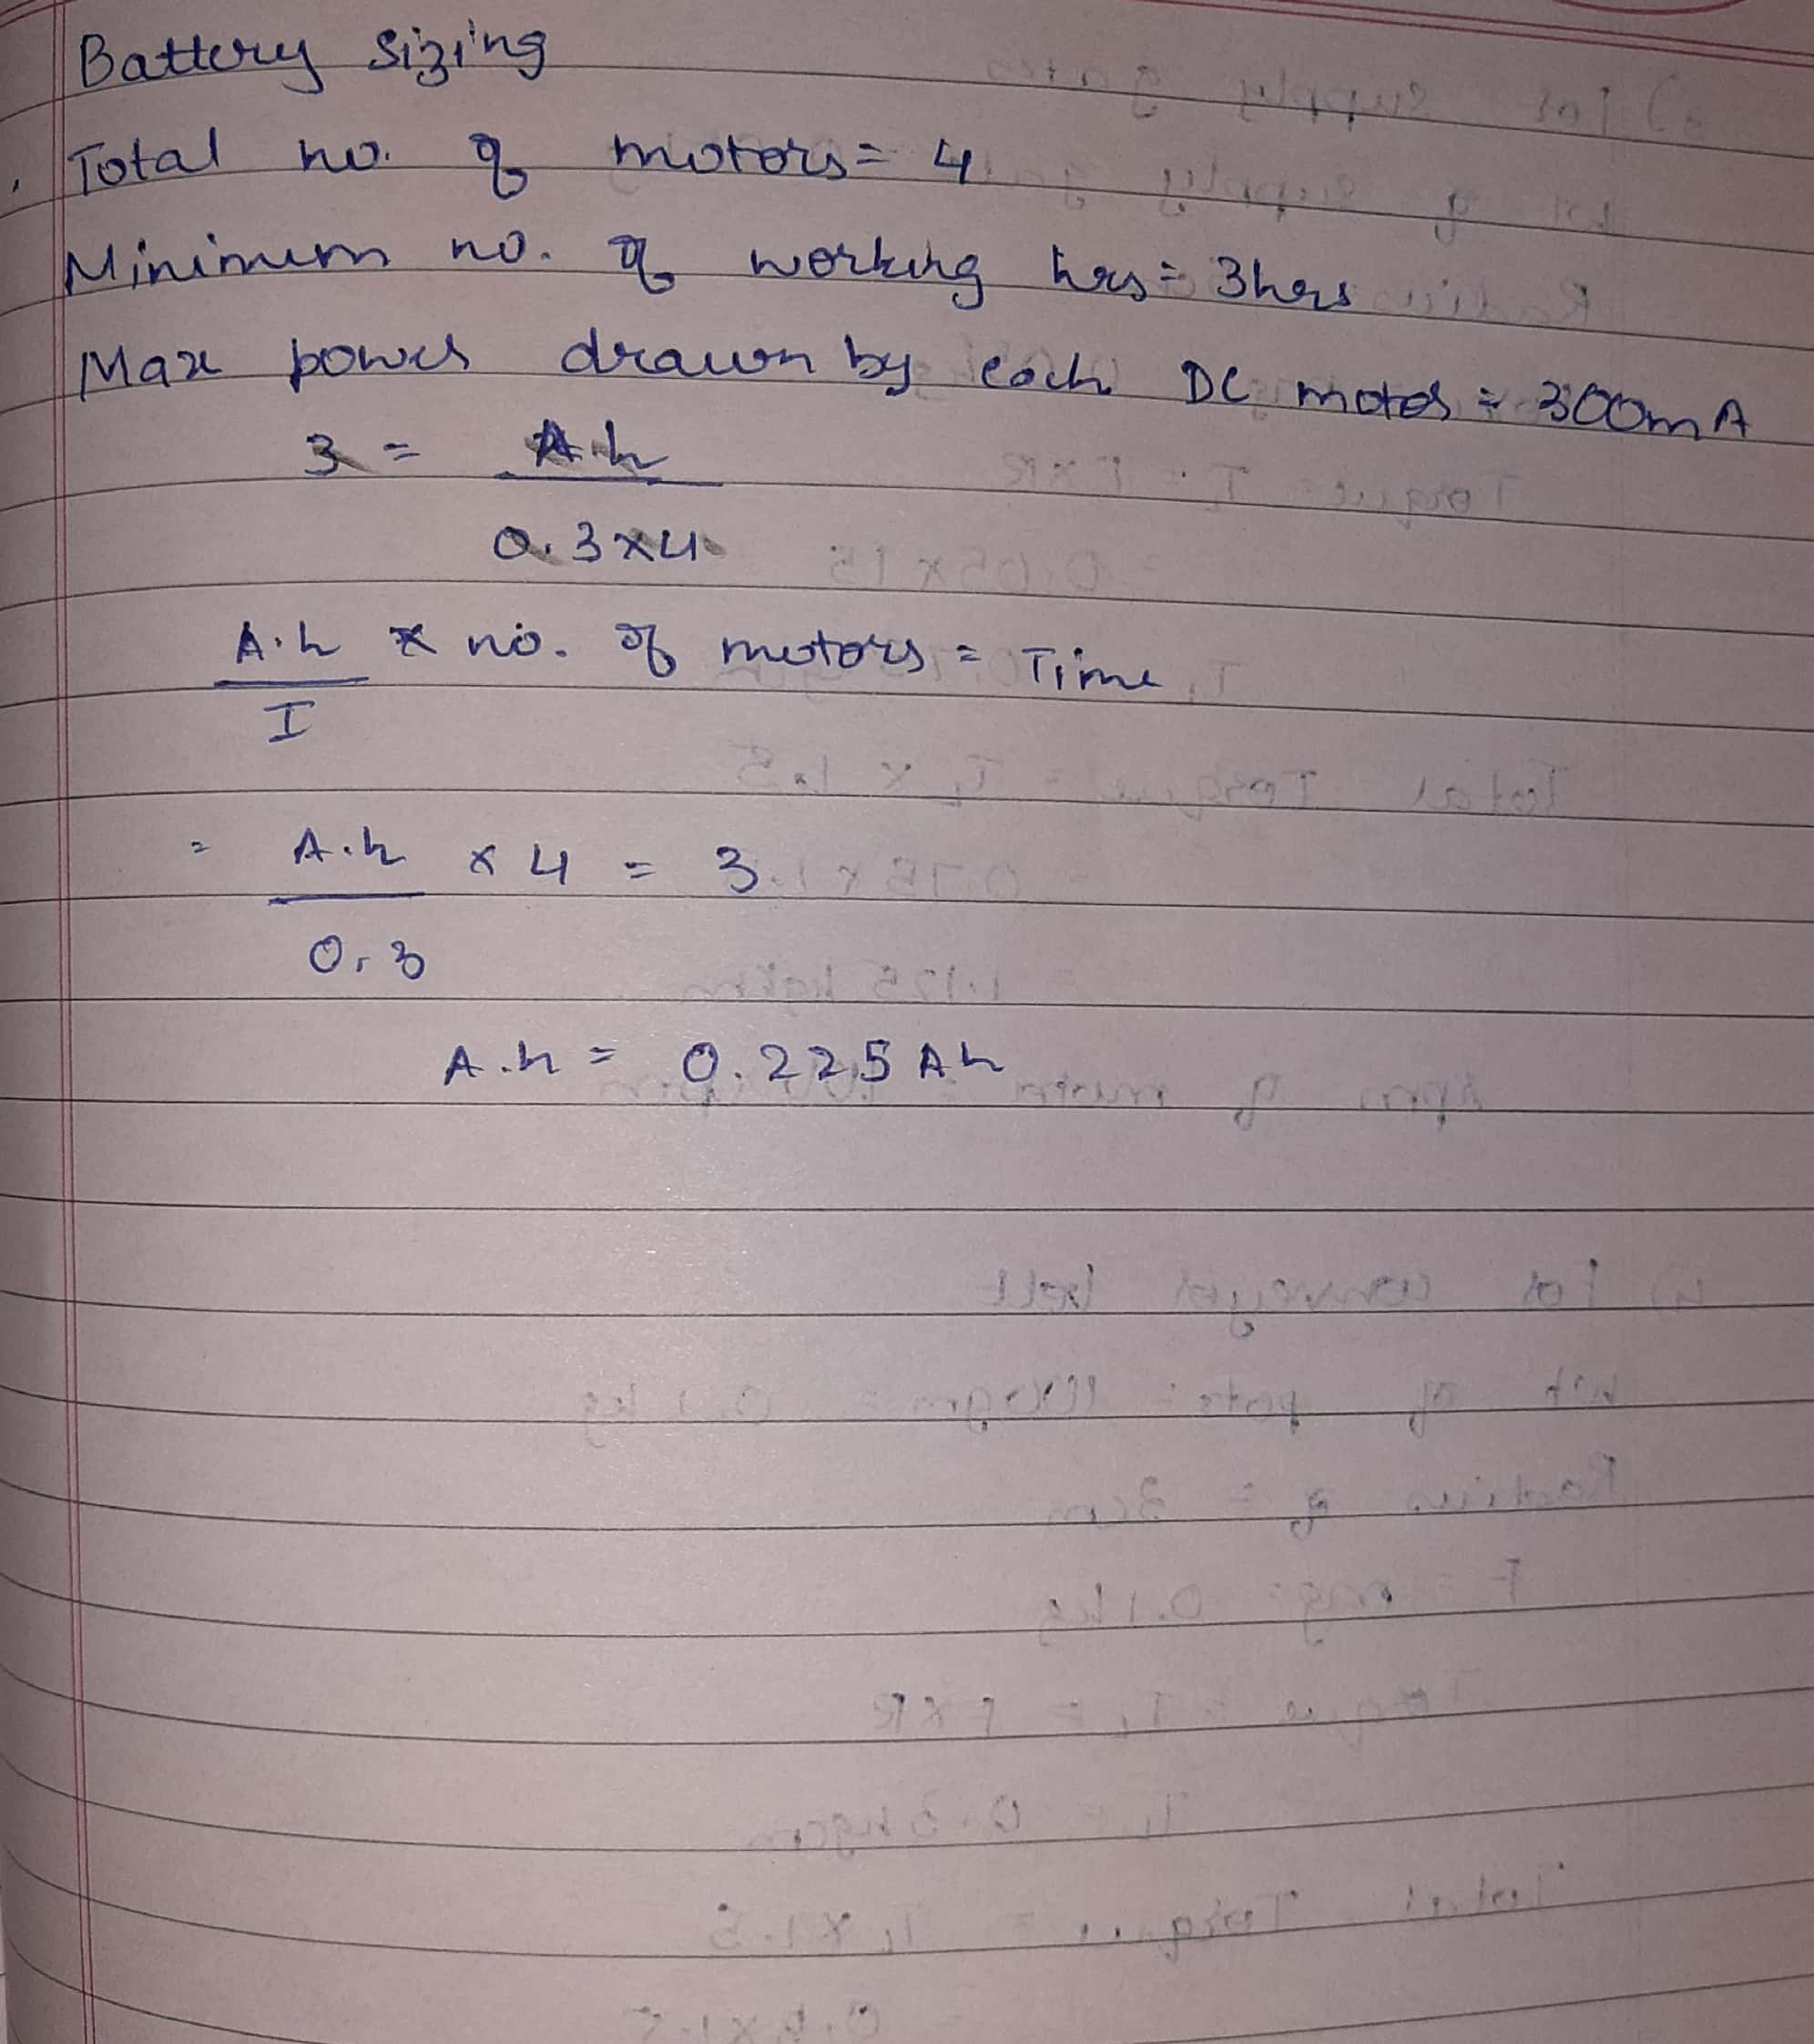 Battery sizing
Total no. of motors = 4
Minimum no. of working hrs = 3hrs
Max power drawn by each DC motor = 300mA
3 = A.h
0.3x4
A.h x no. of motors = Time
I
= A.h x 4 = 3
0.3
A.h = 0.225 Ah